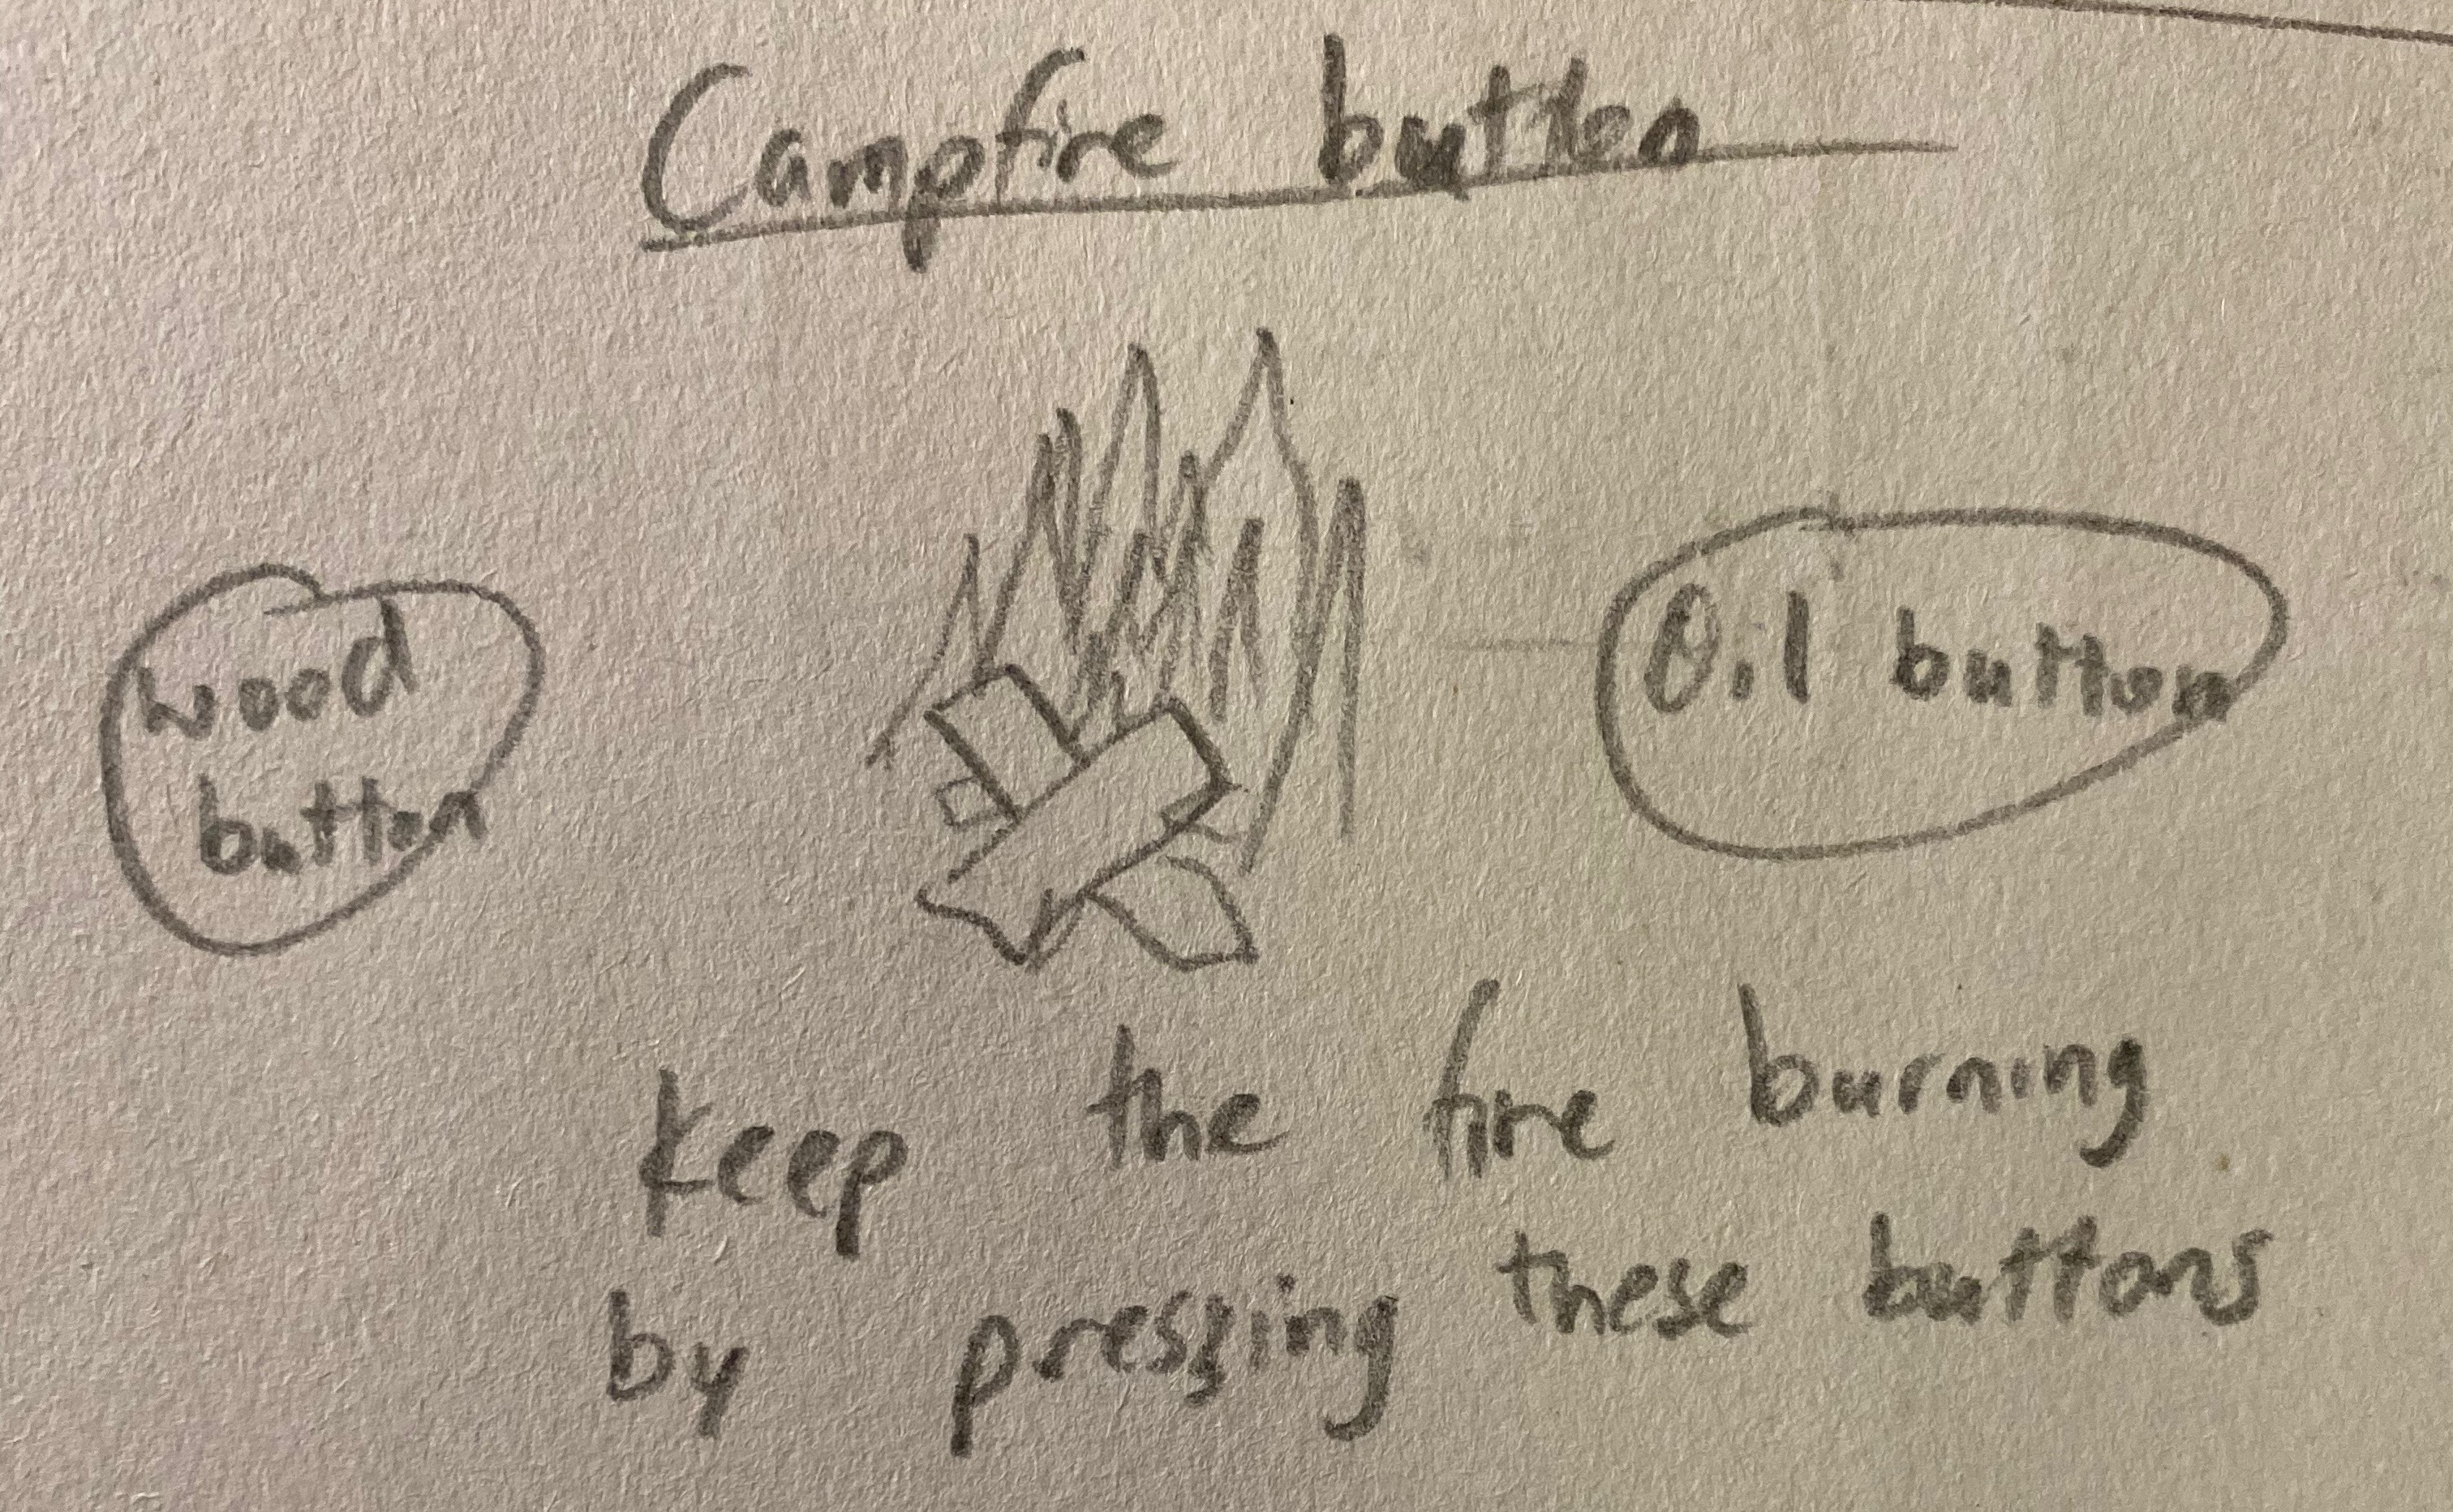 Campfire button
wood
button
Oil button
keep the fire burning
by pressing these buttons